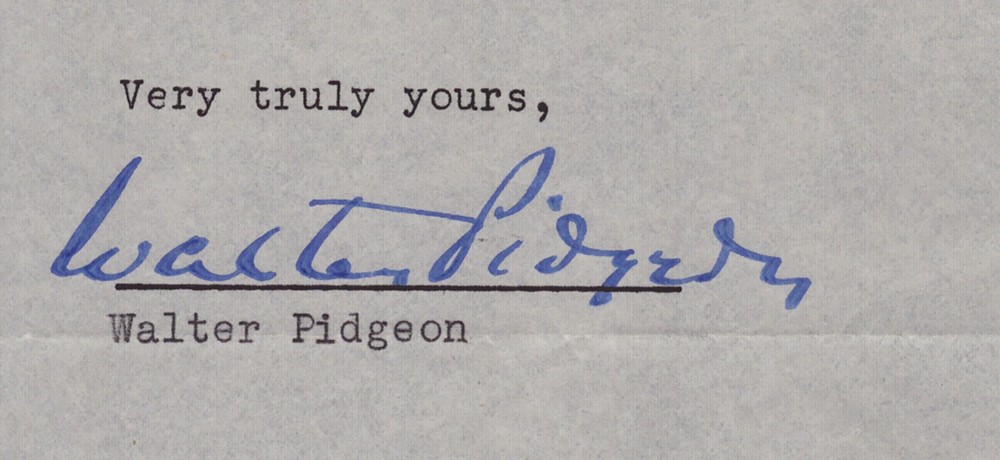 Very truly yours,
Walter Pidgeon
Walter Pidgeon